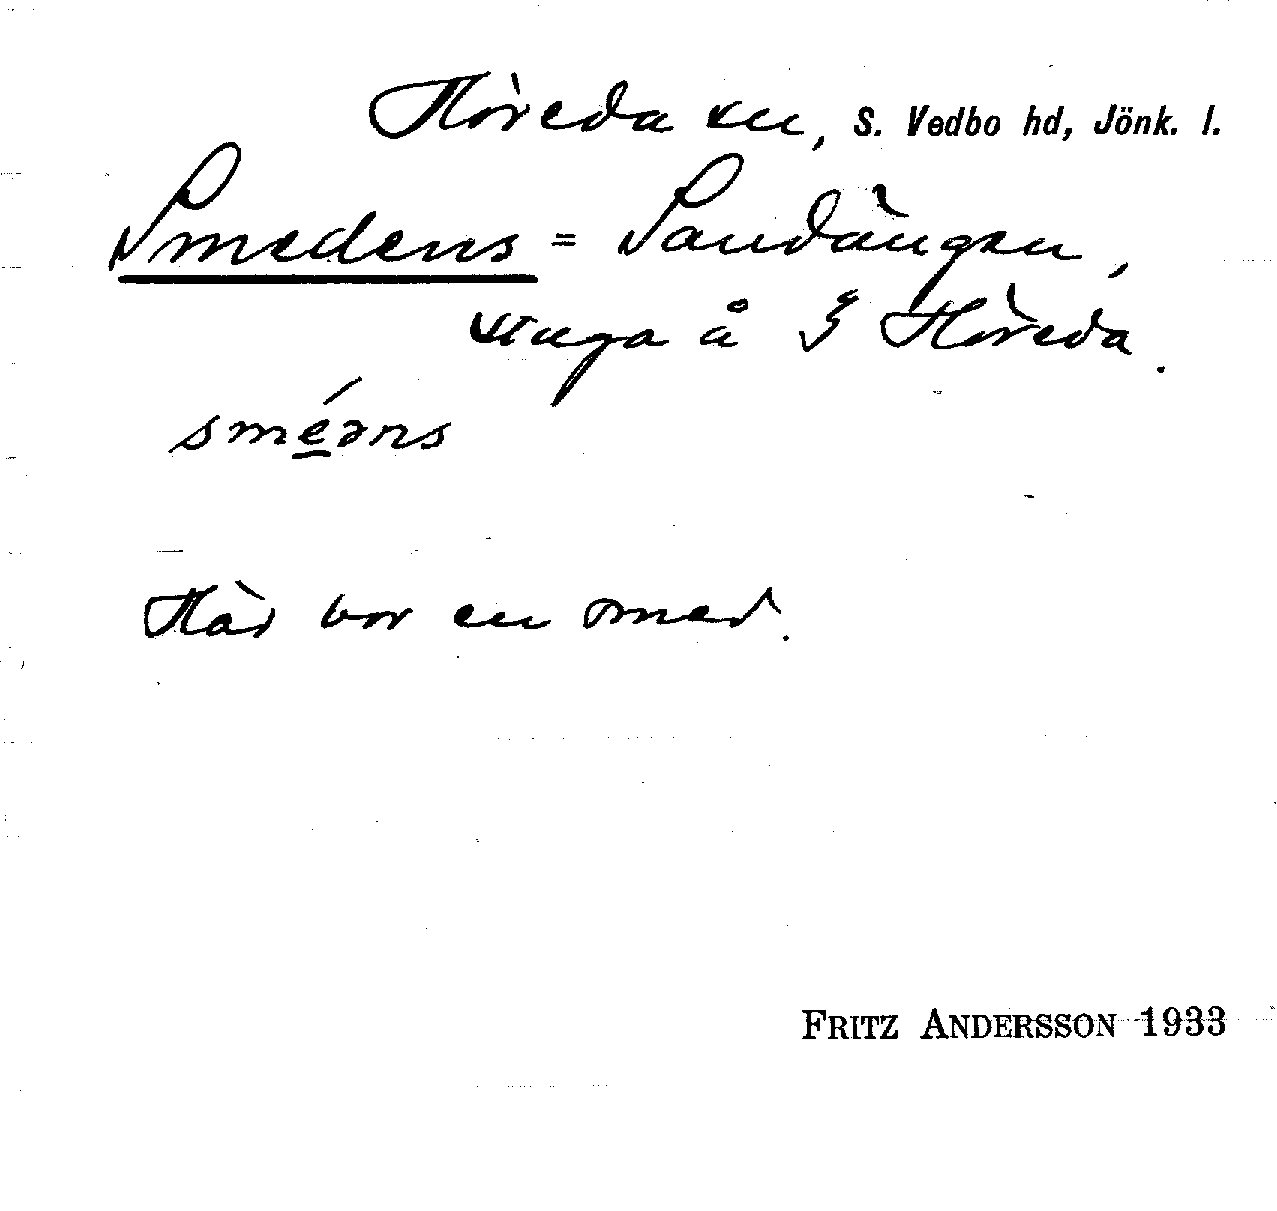 Höreda sn, S. Vedbo hd, Jönk. l.
Smedens = Sandängen,
stuga å § Höreda.
sméəns
Här bor en smed.
FRITZ ANDERSSON 1933